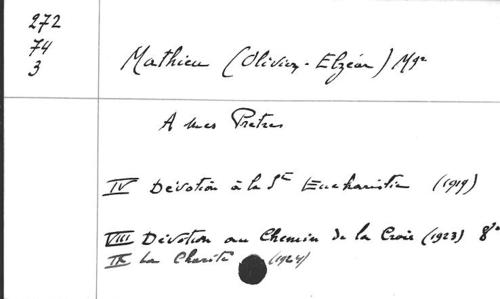 272
74
3
Mathieu (Olivier-Elzéar) Mgr
A mes Prêtres
IV Dévotion à la Ste Eucharistie (1919)
VIII Dévotion au Chemin de la Croix (1923) 8°
IX La Charité (1924)